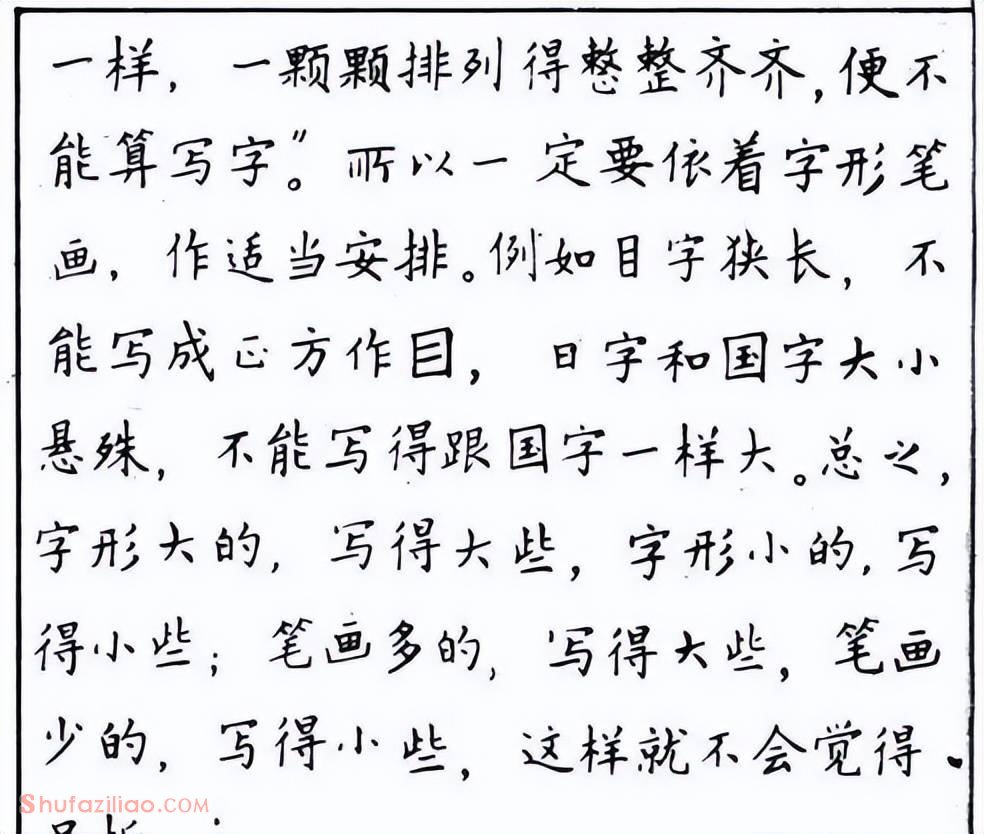 一样，一颗颗排列得整整齐齐，便不
能算写字”。所以一定要依着字形笔
画，作适当安排。例如目字狭长，不
能写成正方作目，日字和国字大小
悬殊，不能写得跟国字一样大。总之，
字形大的，写得大些，字形小的，写
得小些；笔画多的，写得大些，笔画
少的，写得小些，这样就不会觉得
Shufaziliao.COM